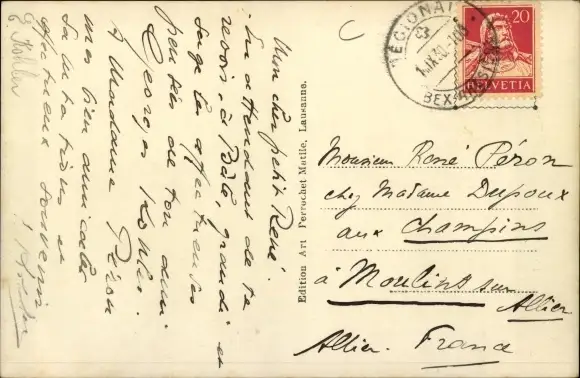 Mon cher petit René.
En attendant de te
revoir, à Bâle, grandi et
sage les affectueuses
pensées de ton ami.
Georges Kohler.
A Madame Péron
mes bien amicales
salutations et
affectueux souvenirs
G. Kohler
Edition Art Perrochet Matile, Lausanne.
C
20
HELVETIA
Monsieur René Péron
chez Madame Dupoux
aux Champins
à Moulins sur
Allier
Allier. France